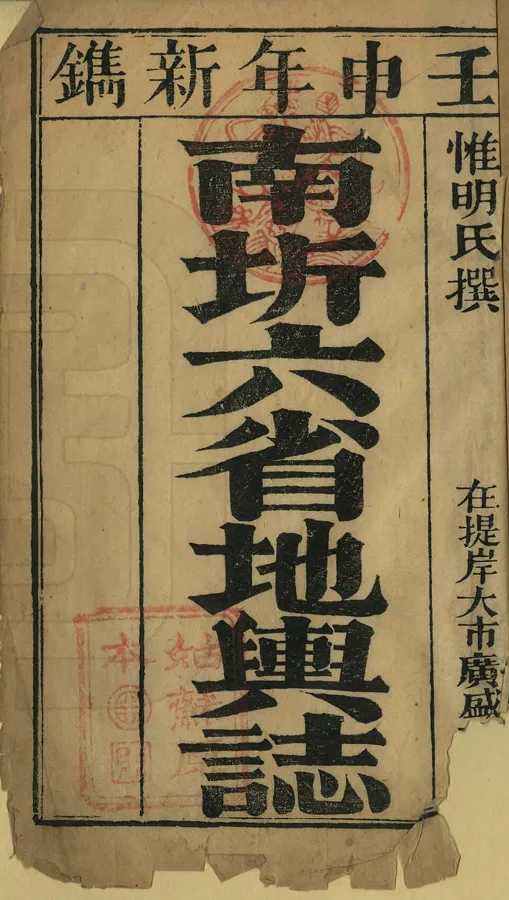 壬申年新鐫
惟明氏撰　在提岸大市廣盛
南圻六省地輿誌